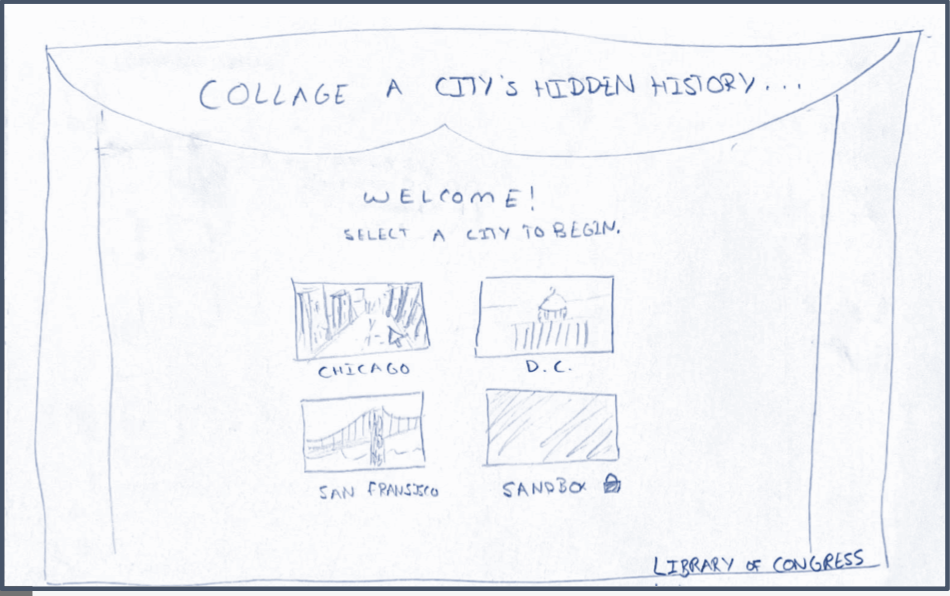 COLLAGE A CITY'S HIDDEN HISTORY...
WELCOME!
SELECT A CITY TO BEGIN.
CHICAGO
D.C.
SAN FRANSISCO
SANDBOX
LIBRARY OF CONGRESS